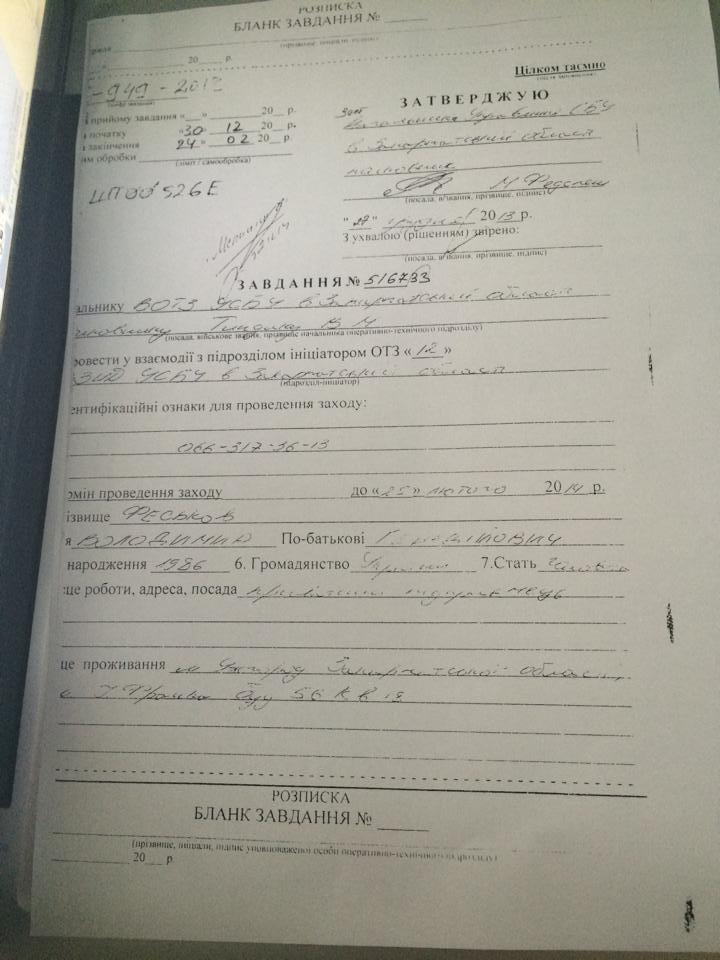 РОЗПИСКА
БЛАНК ЗАВДАННЯ №
(прізвище, ініціали, підпис)
20 р.
Цілком таємно
-949-2013
ЗАТВЕРДЖУЮ
і прийому завдання «__» 20__ р.
початку «30 12 20__ р.
закінчення 24» 02 20__ р.
обробки
(ліміт / самообробка)
Управління СБУ
в Закарпатській області
ЦТ00526Е
(посада, в/звання, прізвище, підпис)
"27" грудня 2013 р.
З ухвалою (рішенням) звірено:
(посада, в/звання, прізвище, підпис)
ЗАВДАННЯ № 516733
альнику ВОТЗ УСБУ в Закарпатській області
В М
(посада, військове звання, прізвище начальника оперативно-технічного підрозділу)
ровести у взаємодії з підрозділом ініціатором ОТЗ «12»
УСБУ в Закарпатській області
(підрозділ-ініціатор)
ентифікаційні ознаки для проведення заходу:
066-317-36-13
рмін проведення заходу до «25» лютого 2014 р.
ізвище Феськов
я Володимир По-батькові
народження 1986 6. Громадянство Україна 7.Стать
це роботи, адреса, посада
це проживання м Ужгород Закарпатської області,
буд 56 кв 18
РОЗПИСКА
БЛАНК ЗАВДАННЯ №
(прізвище, ініціали, підпис уповноваженої особи оперативно-технічного підрозділу)
20 р.